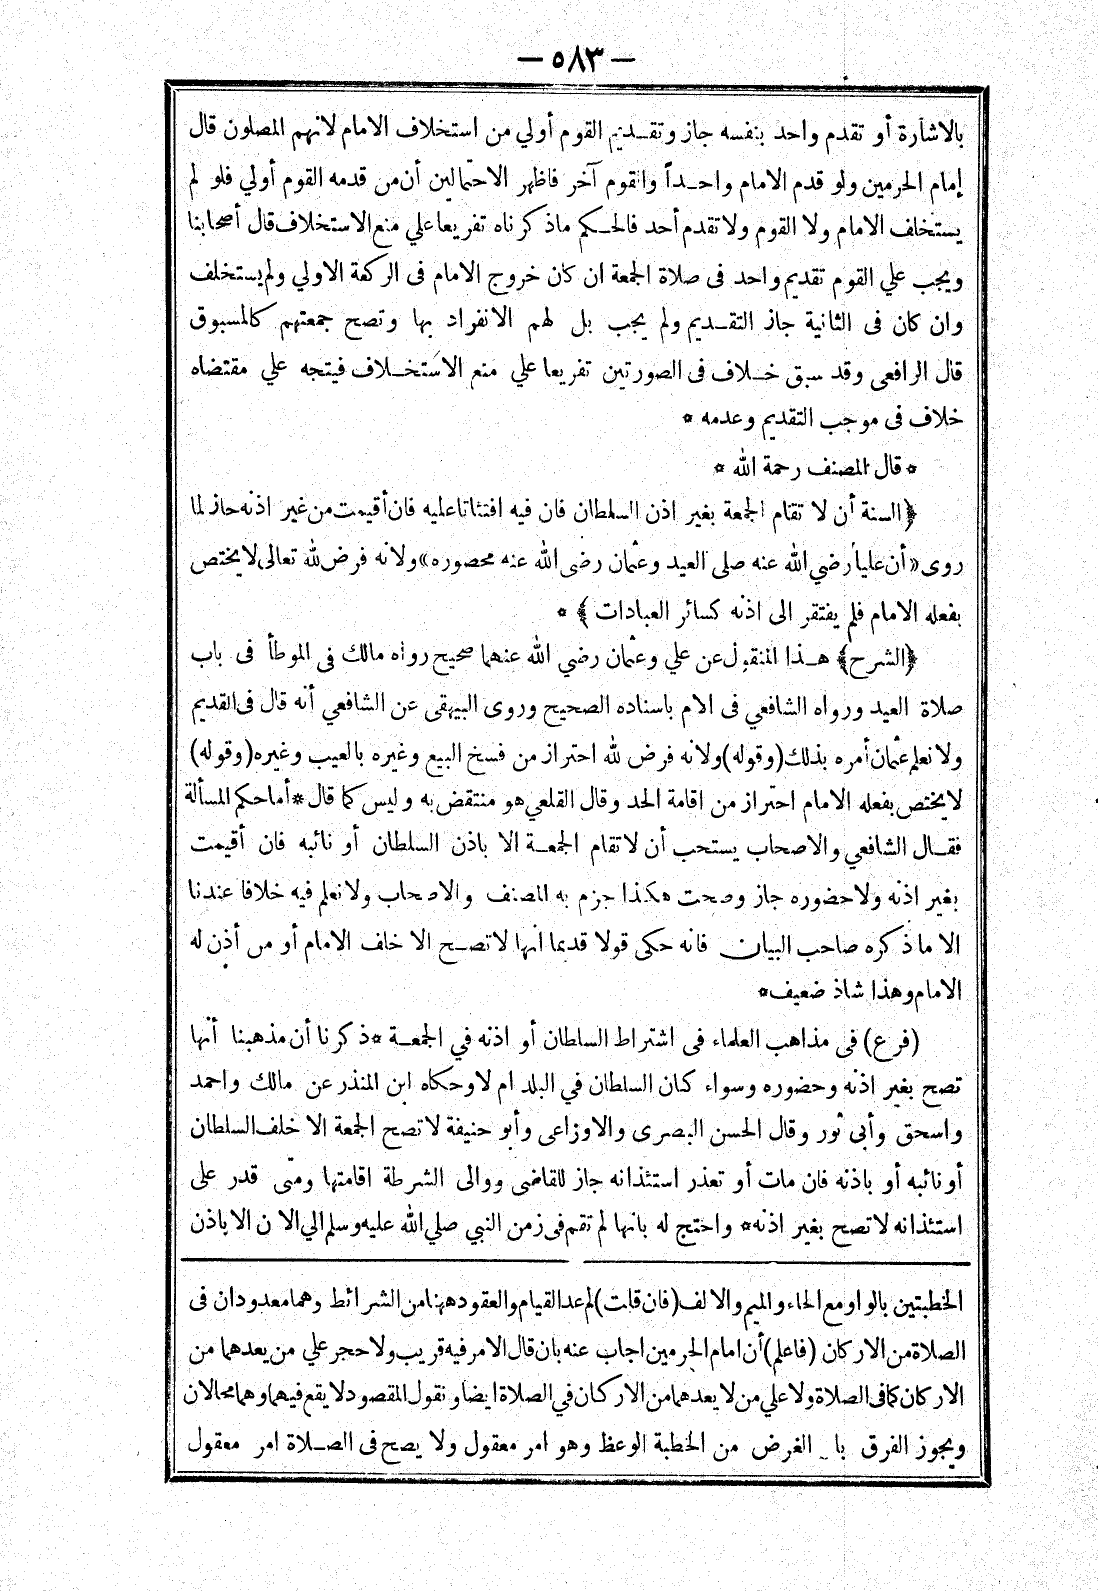 — ٥٨٣ —
بالاشارة أو تقدم واحد بنفسه جاز وتقـديم القوم أولي من استخلاف الامام لانهم المصلون قال
إمام الحرمين ولو قدم الامام واحـداً والقوم آخر فاظهر الاحتمالين أن من قدمه القوم أولي فلو لم
يستخلف الامام ولا القوم ولا تقدم أحد فالحـكم ماذكرناه تفريعا علي منع الاستخلاف قال أصحابنا
ويجب علي القوم تقديم واحد فى صلاة الجمعة ان كان خروج الامام فى الركعة الاولي ولم يستخلف
وان كان فى الثانية جاز التقـديم ولم يجب بل لهم الانفراد بها وتصح جمعتهم كالمسبوق
قال الرافعى وقد سبق خـلاف فى الصورتين تفريعا علي منع الاستخـلاف فيتجه علي مقتضاه
خلاف فى موجب التقديم وعدمه *
* قال المصنف رحمة الله *
﴿السنة أن لا تقام الجمعة بغير اذن السلطان فان فيه افتئاتا عليه فان أقيمت من غير اذنه جاز لما
روى «أن عليا رضي الله عنه صلى العيد وعثمان رضى الله عنه محصوره» ولانه فرض لله تعالى لا يختص
بفعله الامام فلم يفتقر الى اذنه كسائر العبادات ﴾ *
﴿الشرح﴾ هـذا المنقول عن علي وعثمان رضي الله عنهما صحيح رواه مالك فى الموطأ فى باب
صلاة العيد ورواه الشافعي فى الام باسناده الصحيح وروى البيهقى عن الشافعي أنه قال فى القديم
ولا نعلم عثمان أمره بذلك (وقوله) ولانه فرض لله احتراز من فسخ البيع وغيره بالعيب وغيره (وقوله)
لا يختص بفعله الامام احتراز من اقامة الحد وقال القلعي هو منتقض به وليس كما قال * أما حكم المسألة
فقـال الشافعي والاصحاب يستحب أن لا تقام الجمعـة الا باذن السلطان أو نائبه فان أقيمت
بغير اذنه ولا حضوره جاز وصحت هكذا جزم به المصنف والاصحاب ولا نعلم فيه خلافا عندنا
الا ما ذكره صاحب البيان فانه حكى قولا قديما انها لا تصـح الا خلف الامام أو من أذن له
الامام وهذا شاذ ضعيف *
(فرع) فى مذاهب العلماء فى اشتراط السلطان أو اذنه في الجمعـة * ذكرنا أن مذهبنا أنها
تصح بغير اذنه وحضوره وسواء كان السلطان في البلد ام لا وحكاه ابن المنذر عن مالك واحمد
واسحق وأبى ثور وقال الحسن البصرى والاوزاعى وأبو حنيفة لا تصح الجمعة الا خلف السلطان
أو نائبه أو باذنه فان مات أو تعذر استئذانه جاز للقاضى ووالى الشرطة اقامتها ومتى قدر على
استئذانه لا تصح بغير اذنه * واحتج له بانها لم تقم فى زمن النبي صلي الله عليه وسلم الي الان الا باذن
الخطبتين بالواو مع الحاء والميم والالف (فان قلت) لم عد القيام والعقود ههنا من الشرائط وهما معدودان فى
الصلاة من الاركان (فاعلم) أن امام الحرمين اجاب عنه بان قال الامر فيه قريب ولا حجر علي من يعدهما من
الاركان كما فى الصلاة ولا علي من لا يعدهما من الاركان في الصلاة ايضا ونقول المقصود لا يقع فيهما وهما محالان
ويجوز الفرق الغرض من الخطبة الوعظ وهو امر معقول ولا يصح فى الصـلاة امر معقول